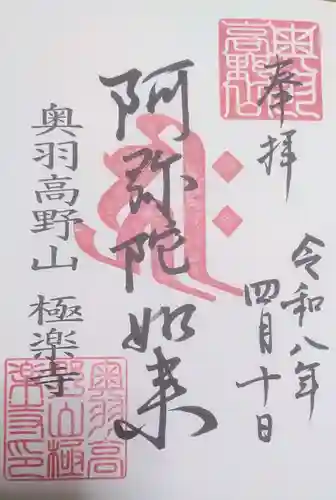 奥羽高野山
奉拝
令和八年
四月十日
阿弥陀如来
奥羽高野山 極楽寺
奥羽高野山極楽寺印